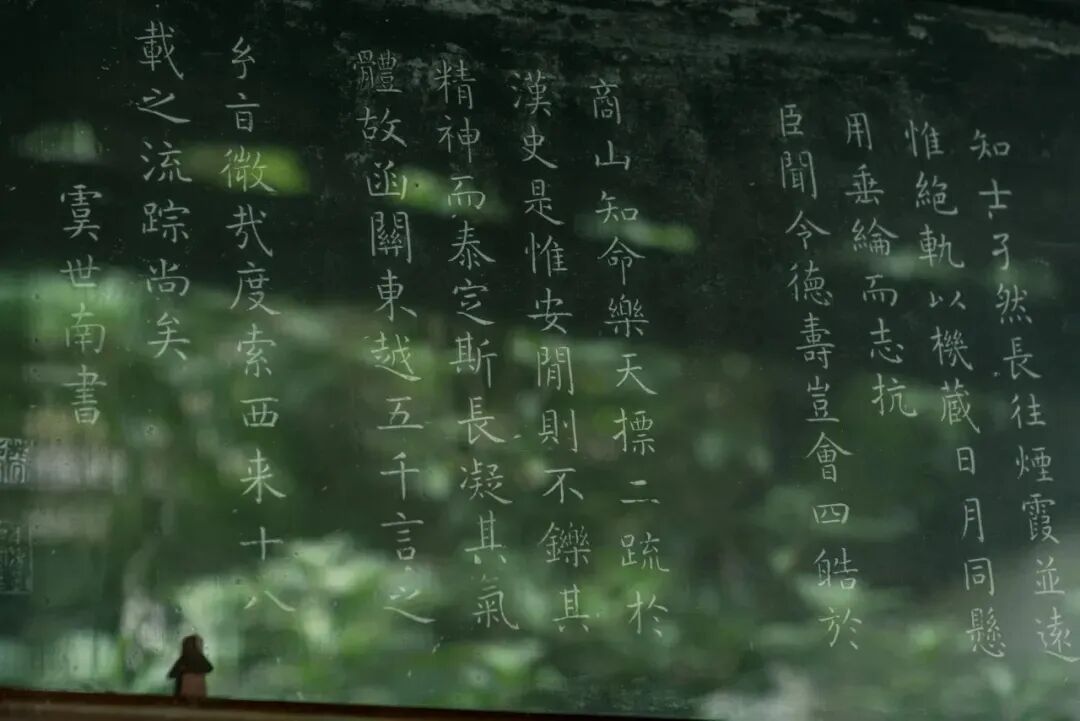 知士孑然長往煙霞並遠
惟絕軌以機蕆日月同懸
用垂綸而志抗
臣聞令德壽豈會四皓於
商山知命樂天標二疏於
漢史是惟安閒則不鑠其
精神而泰定斯長凝其氣
體故函關東越五千言之
妙音微哉度索西来十八
載之流踪尚矣
虞世南書